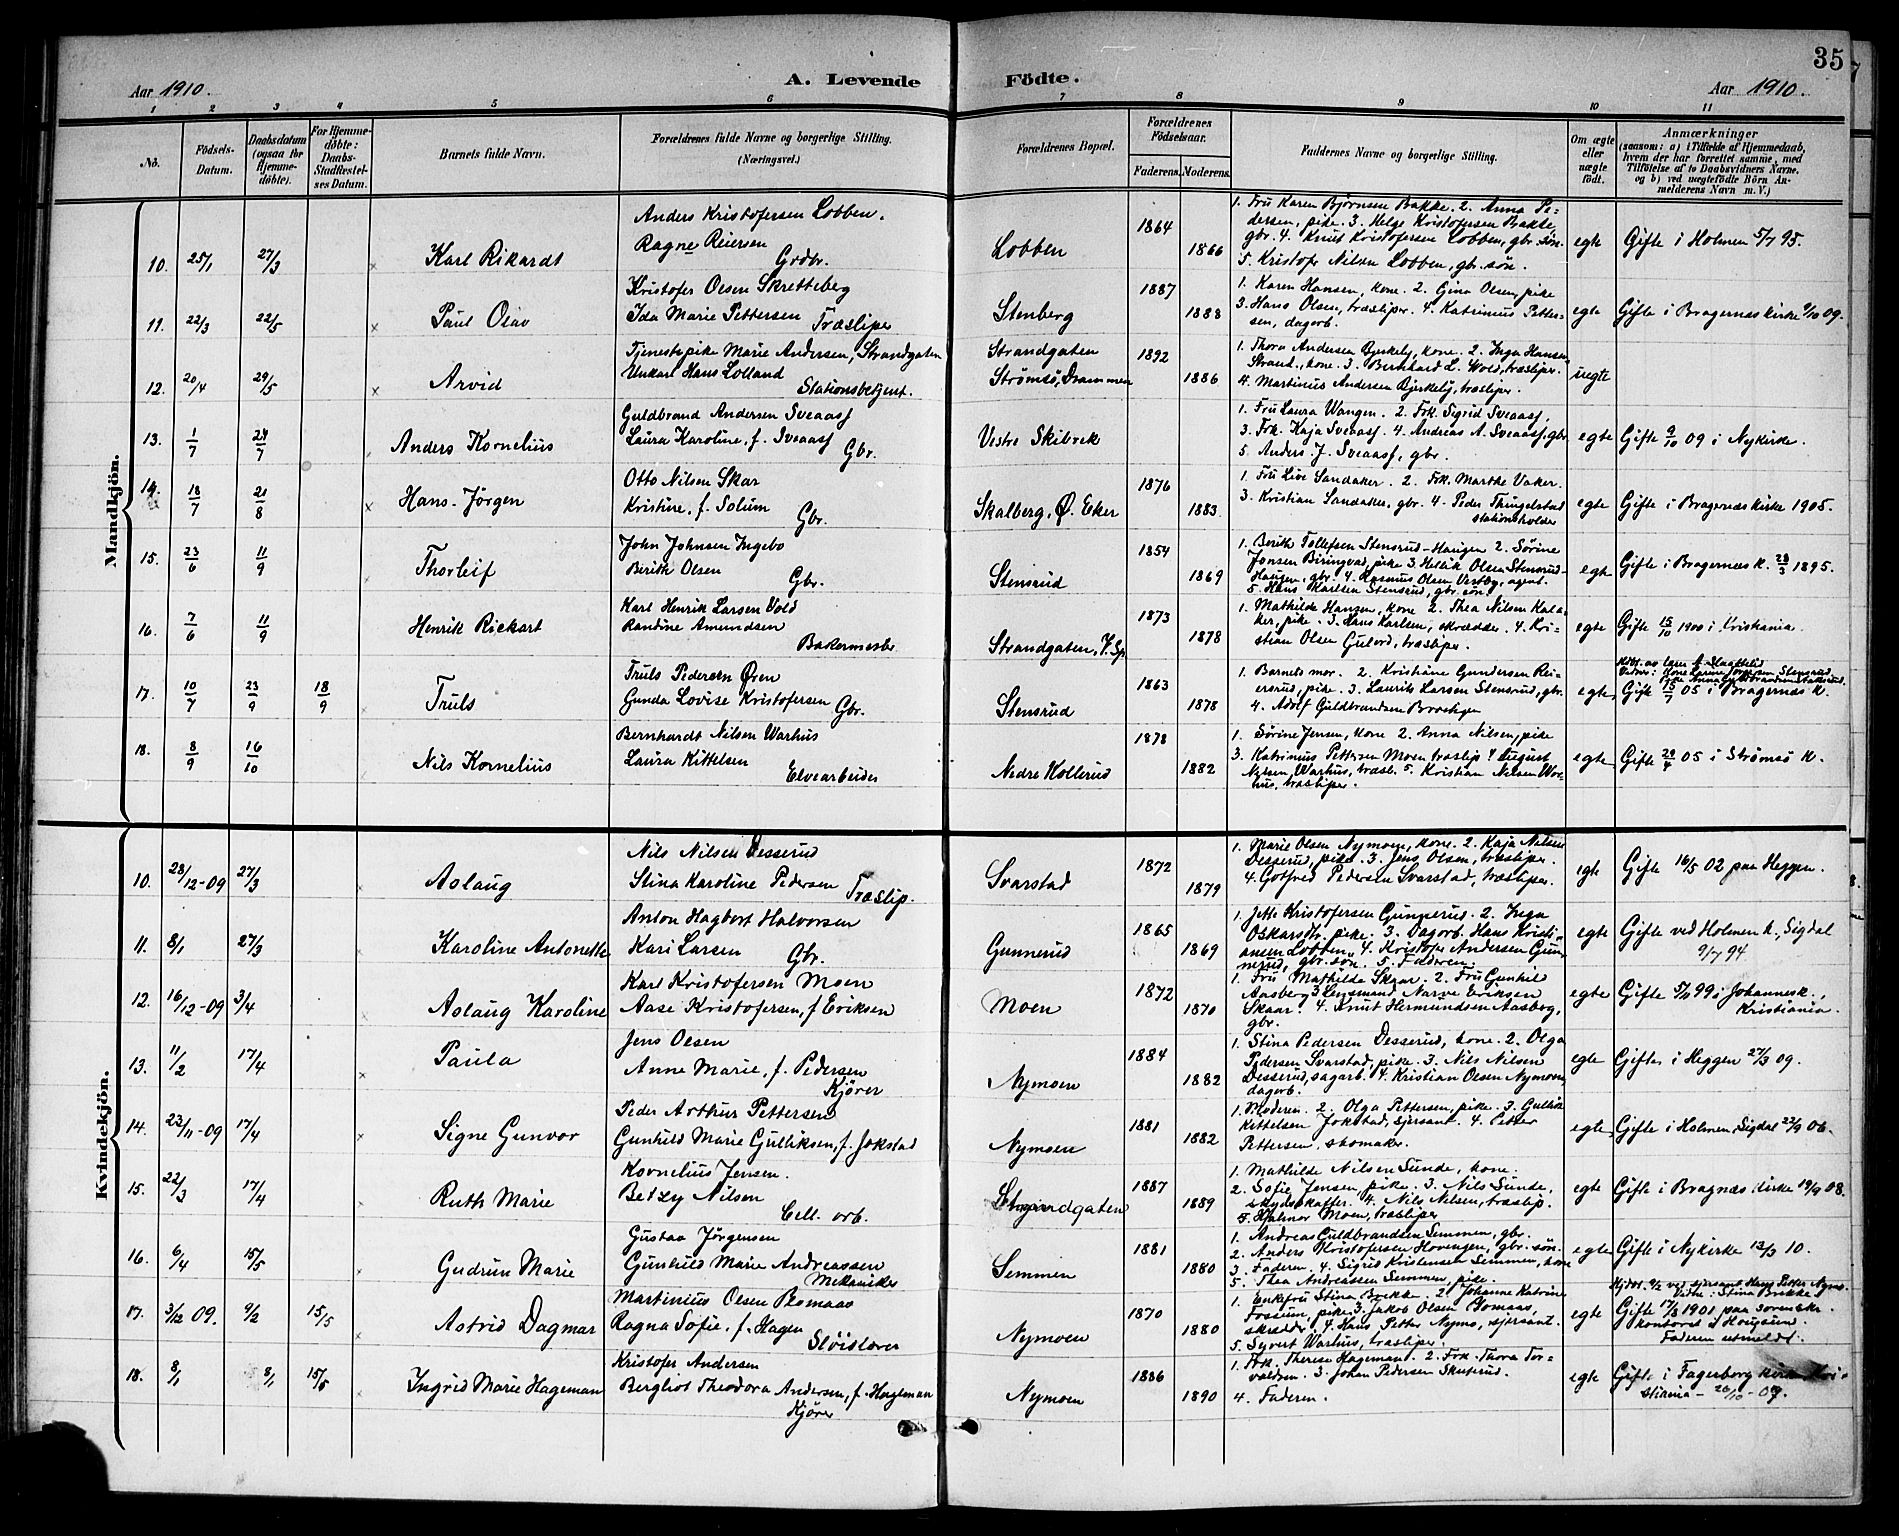 35
Aar 1910.
A. Levende Födte.
Aar 1910.
1 2 3 4 5 6 7 8 9 10 11
No.
Födsels-Datum.
Daabsdatum (ogsaa for Hjemme-döbte).
For Hjemme-döbte: Daabs-Stadfæstel-ses Datum.
Barnets fulde Navn.
Forældrenes fulde Navne og borgerlige Stilling.
(Næringsvei.)
Forældrenes Bopæl.
Forældrenes Födselsaar.
Faderens. Moderens.
Faddernes Navne og borgerlige Stilling.
Om ægte eller uægte födt.
Anmærkninger
(saasom: a) i Tilfælde af Hjemmedaab,
hvem der har forrettet samme, med
Tilföielse af to Daabsvidners Navne.
og b) ved uægtefödte Börn An-
melderens Navn m. V.)
Mandkjön.
10. 25/1 27/3 Karl Rikardt
Anders Kristofersen Lobben.
Ragne Reiersen
Grdbr.
Lobben 1864 1866
1. Fru Karen Bjørnsen Bakke. 2. Anna Pe-
dersen, pike. 3. Helge Kristofersen Bakke,
gbr. 4. Knut Kristofersen Lobben, gbr. søn.
5. Kristofer Nilsen Lobben, gbr. søn.
egte Gifte i Holmen 5/7 95.
11. 22/3 22/5 Paul Olav
Kristofer Olsen Skretteberg
Ida Marie Pettersen
Træsliper
Stenberg 1887 1888
1. Karen Hansen, kone. 2. Gina Olsen, pike
3. Hans Olsen, træsliper. 4. Katrinius Petter-
sen, dagarb.
egte Gifte i Bragernes kirke 9/10 09.
12. 20/4 29/5 Arvid
Tjenestepike Marie Andersen, Strandgaten
Unkarl Hans Lolland
Stationsbetjent.
Strandgaten
Strømsø, Drammen
1892 1886
1. Thora Andersen Bjerkely, kone. 2. Inga Hansen
Strand, kone. 3. Bernhard L. Wold, træsliper.
4. Martinius Andersen Bjerkely, træsliper.
uegte
13. 1/7 24/7 Anders Kornelius
Guldbrand Andersen Sveaass
Laura Karoline, f. Sveaass
Gbr.
Vestre Skibvik
1. Fru Laura Wangen. 2. Frk. Sigrid Sveaass,
3. Frk. Kaja Sveaass. 4. Andreas A. Sveaass, gbr.
5. Anders J. Sveaass, gbr.
egte Gifte 9/10 09 i Nykirke.
14. 18/7 21/8 Hans-Jørgen
Otto Nilsen Skar
Kristine, f. Solum
Gbr.
Skalberg, Ø. Eker 1876 1883
1. Fru Live Sandaker. 2. Frk. Marthe Vaker.
3. Kristian Sandaker, gbr. 4. Peder Thingelstad
stationsholder
egte Gifte i Bragernes kirke 1905.
15. 23/6 11/9 Thorleif
John Johnsen Ingebo
Berith Olsen
Gbr.
Stensrud 1854 1869
1. Berithe Tollefsen Stensrud-Haugen 2. Sørine
Jonsen Biringvad, pike 3. Hellik Olsen Stensrud-
Haugen, gbr. 4. Rasmus Olsen Vestby, agent.
5. Hans Karlsen Stensrud, gbr. søn
egte Gifte i Bragernes K. 28/3 1895.
16. 7/6 11/9 Henrik Rickart
Karl Henrik Larsen Vold
Randine Amundsen
Bakermester
Strandgaten, V. Sp. 1873 1878
1. Mathilde Hansen, kone 2. Thea Nilsen Kala-
ker, pike. 3. Hans Karlsen, skrædder. 4. Kri-
stian Olsen Gulord, træsliper.
egte Gifte 15/10 1900 i Kristiania.
17. 10/7 23/9 18/9 Truls
Truls Pedersen Øren
Gunda Lovise Kristofersen
Gbr.
Stensrud 1863 1878
1. Barnets mor. 2. Kristiane Gundersen Rei-
ersrud, pike. 3. Laurits Larsen Stensrud, gbr.
4. Adolf Guldbrandsen
egte
Gifte 15/7 05 i Bragernes K.
18. 8/9 16/10 Nils Kornelius
Bernhardt Nilsen Warhus
Laura Kittelsen
Elvearbeider
Nedre Kollerud 1878 1882
1. Sørine Jensen, kone 2. Anna Nilsen, pike
3. Katrinius Pettersen Moen træslip 4 August
Nilsen Warhus, træsl. 5. Kristian Nilsen War-
hus, træsliper.
egte Gifte 29/4 05 i Strømsø K.
Kvindekjön.
10. 28/12-09 27/3 Aslaug
Nils Nilsen Desserud
Stina Karoline Pedersen
Træslip.
Svarstad 1872 1879
1. Marie Olsen Nymoen, kone. 2. Kaja Nilsen
Desserud, pike. 3. Jens Olsen, træsliper.
4. Gotfred Pedersen Svarstad, træsliper.
egte Gifte 16/5 02 paa Heggen.
11. 8/1 27/3 Karoline Antonette
Anton Hagbart Halvorsen
Kari Larsen
Gbr.
Gunnerud 1865 1869
1. Jette Kristofersen Gunnerud. 2. Inga
Oskarsth, pike. 3. Dagarb. Hans Kristi-
ansen Lobben. 4. Kristofer Andersen Gun-
nerud, gbr. søn. 5. Faderen.
egte Gifte ved Holmen k., Sigdal
9/7 94
12. 16/12-09 3/4 Aslaug Karoline
Karl Kristofersen Moen
Aase Kristofersen, f Eriksen
Moen 1872 1870
1. Fru Mathilde Skaar. 2. Fru Gunhild
Aasberg 3 Lensmand Narve Eriksen
Skaar. 4. Knut Hermundsen Aasberg,
gbr.
egte Gifte 5/11 99 i Johannesk.,
Kristiania.
13. 11/2 17/4 Paula
Jens Olsen
Anne Marie, f. Pedersen
Kjører
Nymoen 1884 1882
1. Stina Pedersen Desserud, kone. 2. Olga
Pedersen Svarstad, pike. 3. Nils Nilsen
Desserud, sagarb. 4. Kristian Olsen Nymoen,
dagarb.
egte Gifte i Heggen 27/3 09.
14. 23/11-09 17/4 Signe Gunvor
Peder Arthur Pettersen
Gunhild Marie Gulliksen, f. Jokstad
Nymoen 1881 1882
1. Moderen. 2. Olga Pettersen, pike. 3. Gullik
Kettelsen Jokstad, sjersant. 4. Petter
Pettersen, skomaker.
egte Gifte i Holmen, Sigdal 22/9 06.
15. 22/3 17/4 Ruth Marie
Kornelius Jensen.
Betzy Nilsen
Cell. arb.
Strandgaten 1887 1889
1. Mathilde Nilsen Sunde, kone.
2. Sofie Jensen, pike. 3. Nils Sunde,
skydsskaffer. 4. Nils Nilsen, træslip.
5. Hjalmar Moen, træsliper
egte Gifte i Bragnæs kirke 19/9 08.
16. 6/4 15/5 Gudrun Marie
Gustav Jørgensen
Gunhild Marie Andreassen
Mekaniker
Semmen 1881 1880
1. Andreas Guldbrandsen Semmen, gbr.
2. Anders Kristofersen Hovingen, gbr. søn.
3. Faderen. 4. Sigrid Kristensen Semmen, kone
5. Thea Andreassen Semmen, pike.
egte Gifte i Nykirke 13/3 10.
17. 3/12 09. 9/2 15/5 Astrid Dagmar
Martinius Olsen Bromaas
Ragna Sofie, f. Hagen
Sløislærer
Nymoen 1870 1880
1. Enkefru Stina Brekke. 2. Johanne Katrin
Fossum, pike. 3. Jakob Olsen Bomaas,
skrædd. 4. Hans Petter Nymo, sjersant.
5. Syvert Warhus, træsliper.
egte
Hjdøt. 9/2 ved sjersant Hans Petter Nymo.
Vidne: Stina Brekke
Gifte 17/3 1901 paa sorenskr.
kontoret i Hougsund.
Faderen utmeldt.
18. 8/1 8/1 15/5 Ingrid Marie Hageman
Kristofer Andersen
Bergliot Theodora Andersen, f. Hageman
Kjører
Nymoen 1886 1890
1. Frk. Therese Hageman. 2. Frk. Thora Tor-
valdsen. 3. Johan Pedersen Skuterud.
4. Faderen.
egte Gifte i Fagerborg kirke Kri-
stiania - 20/10 - 09.